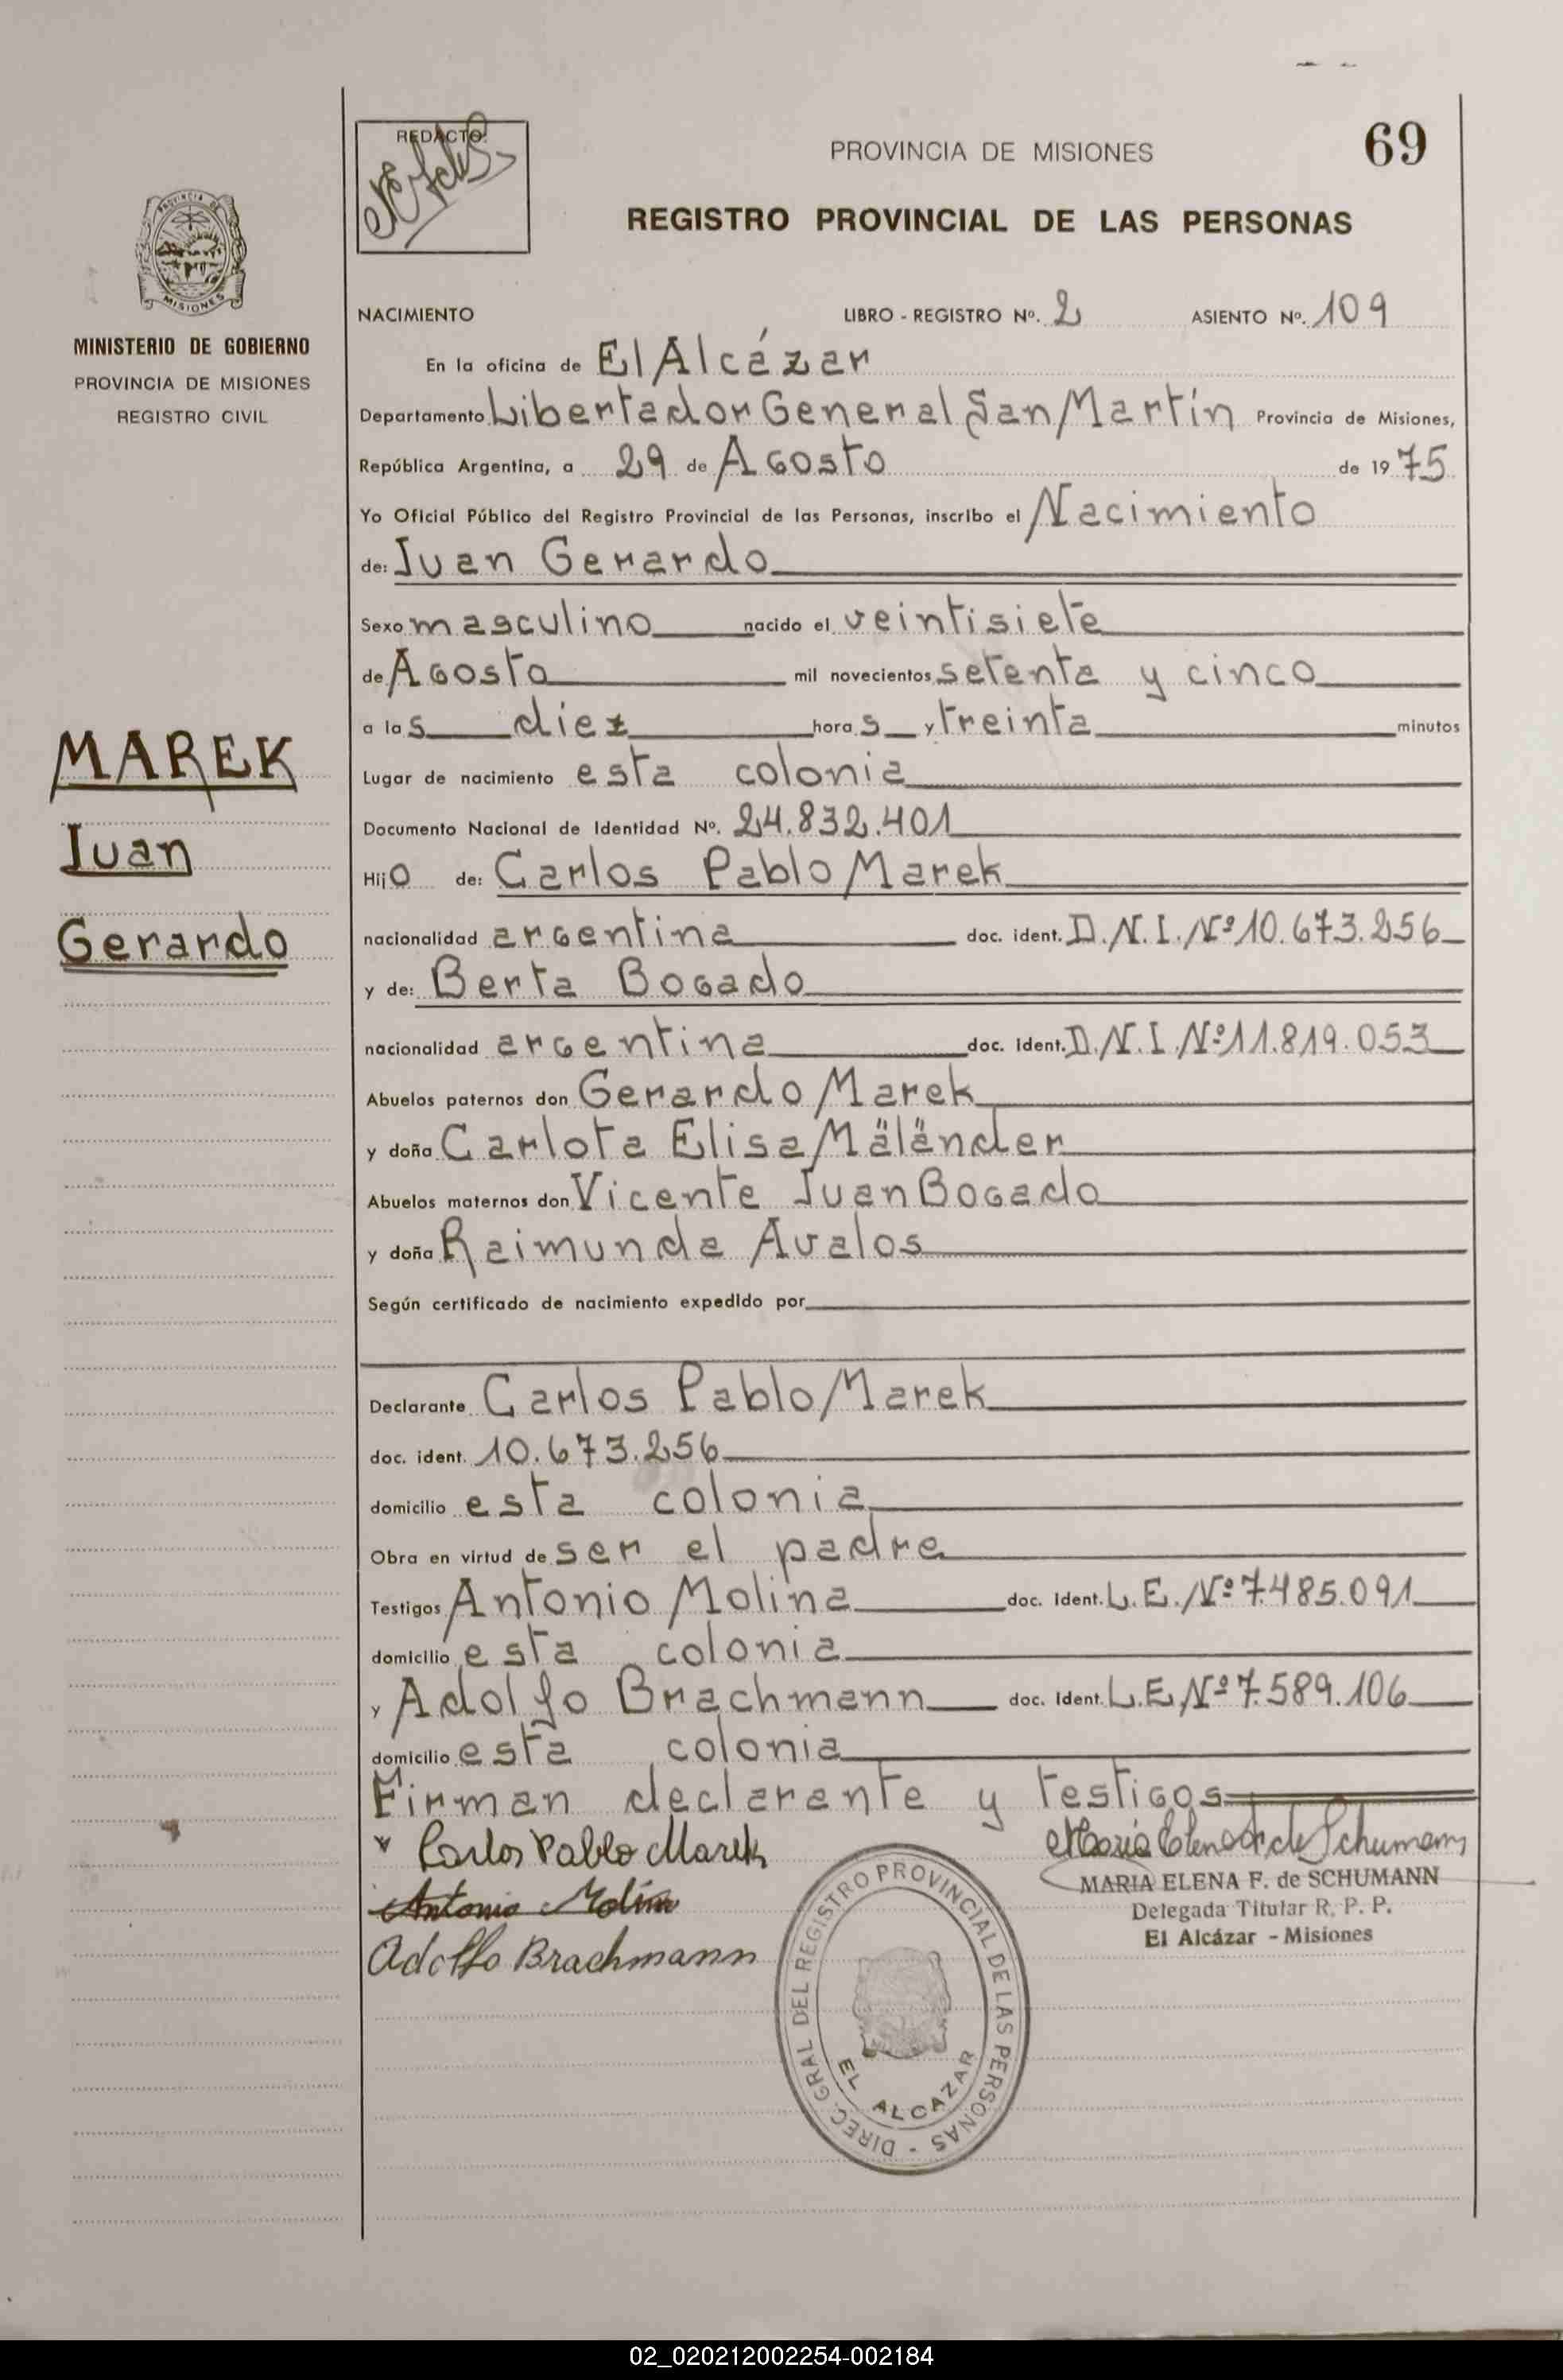 69
REDACTO:
PROVINCIA DE MISIONES
REGISTRO PROVINCIAL DE LAS PERSONAS
PROVINCIA DE
MISIONES
MINISTERIO DE GOBIERNO
PROVINCIA DE MISIONES
REGISTRO CIVIL
MAREK
Juan
Gerardo
NACIMIENTO LIBRO - REGISTRO Nº. 2 ASIENTO Nº. 109
En la oficina de El Alcázar
Departamento Libertador General San Martín Provincia de Misiones,
República Argentina, a 29 de Agosto de 1975
Yo Oficial Público del Registro Provincial de las Personas, inscribo el Nacimiento
de: Juan Gerardo
Sexo masculino nacido el veintisiete
de Agosto mil novecientos setenta y cinco
a las diez horas y treinta minutos
Lugar de nacimiento esta colonia
Documento Nacional de Identidad Nº. 24.832.401
Hijo de: Carlos Pablo Marek
nacionalidad argentina doc. ident. D.N.I. Nº 10.673.256
y de: Berta Bogado
nacionalidad argentina doc. ident. D.N.I. Nº 11.819.053
Abuelos paternos don Gerardo Marek
y doña Carlota Elisa Mäländer
Abuelos maternos don Vicente Juan Bogado
y doña Raimunda Avalos
Según certificado de nacimiento expedido por
Declarante Carlos Pablo Marek
doc. ident. 10.673.256
domicilio esta colonia
Obra en virtud de ser el padre
Testigos Antonio Molina doc. ident. L.E. Nº 7.485.091
domicilio esta colonia
y Adolfo Brachmann doc. ident. L.E. Nº 7.589.106
domicilio esta colonia
Firman declarante y testigos
Carlos Pablo Marek
Antonio Molina
Adolfo Brachmann
Maria Elena F. de Schumann
MARIA ELENA F. de SCHUMANN
Delegada Titular R. P. P.
El Alcázar - Misiones
DIREC. GRAL DEL REGISTRO PROVINCIAL DE LAS PERSONAS -
EL ALCAZAR
02_020212002254-002184